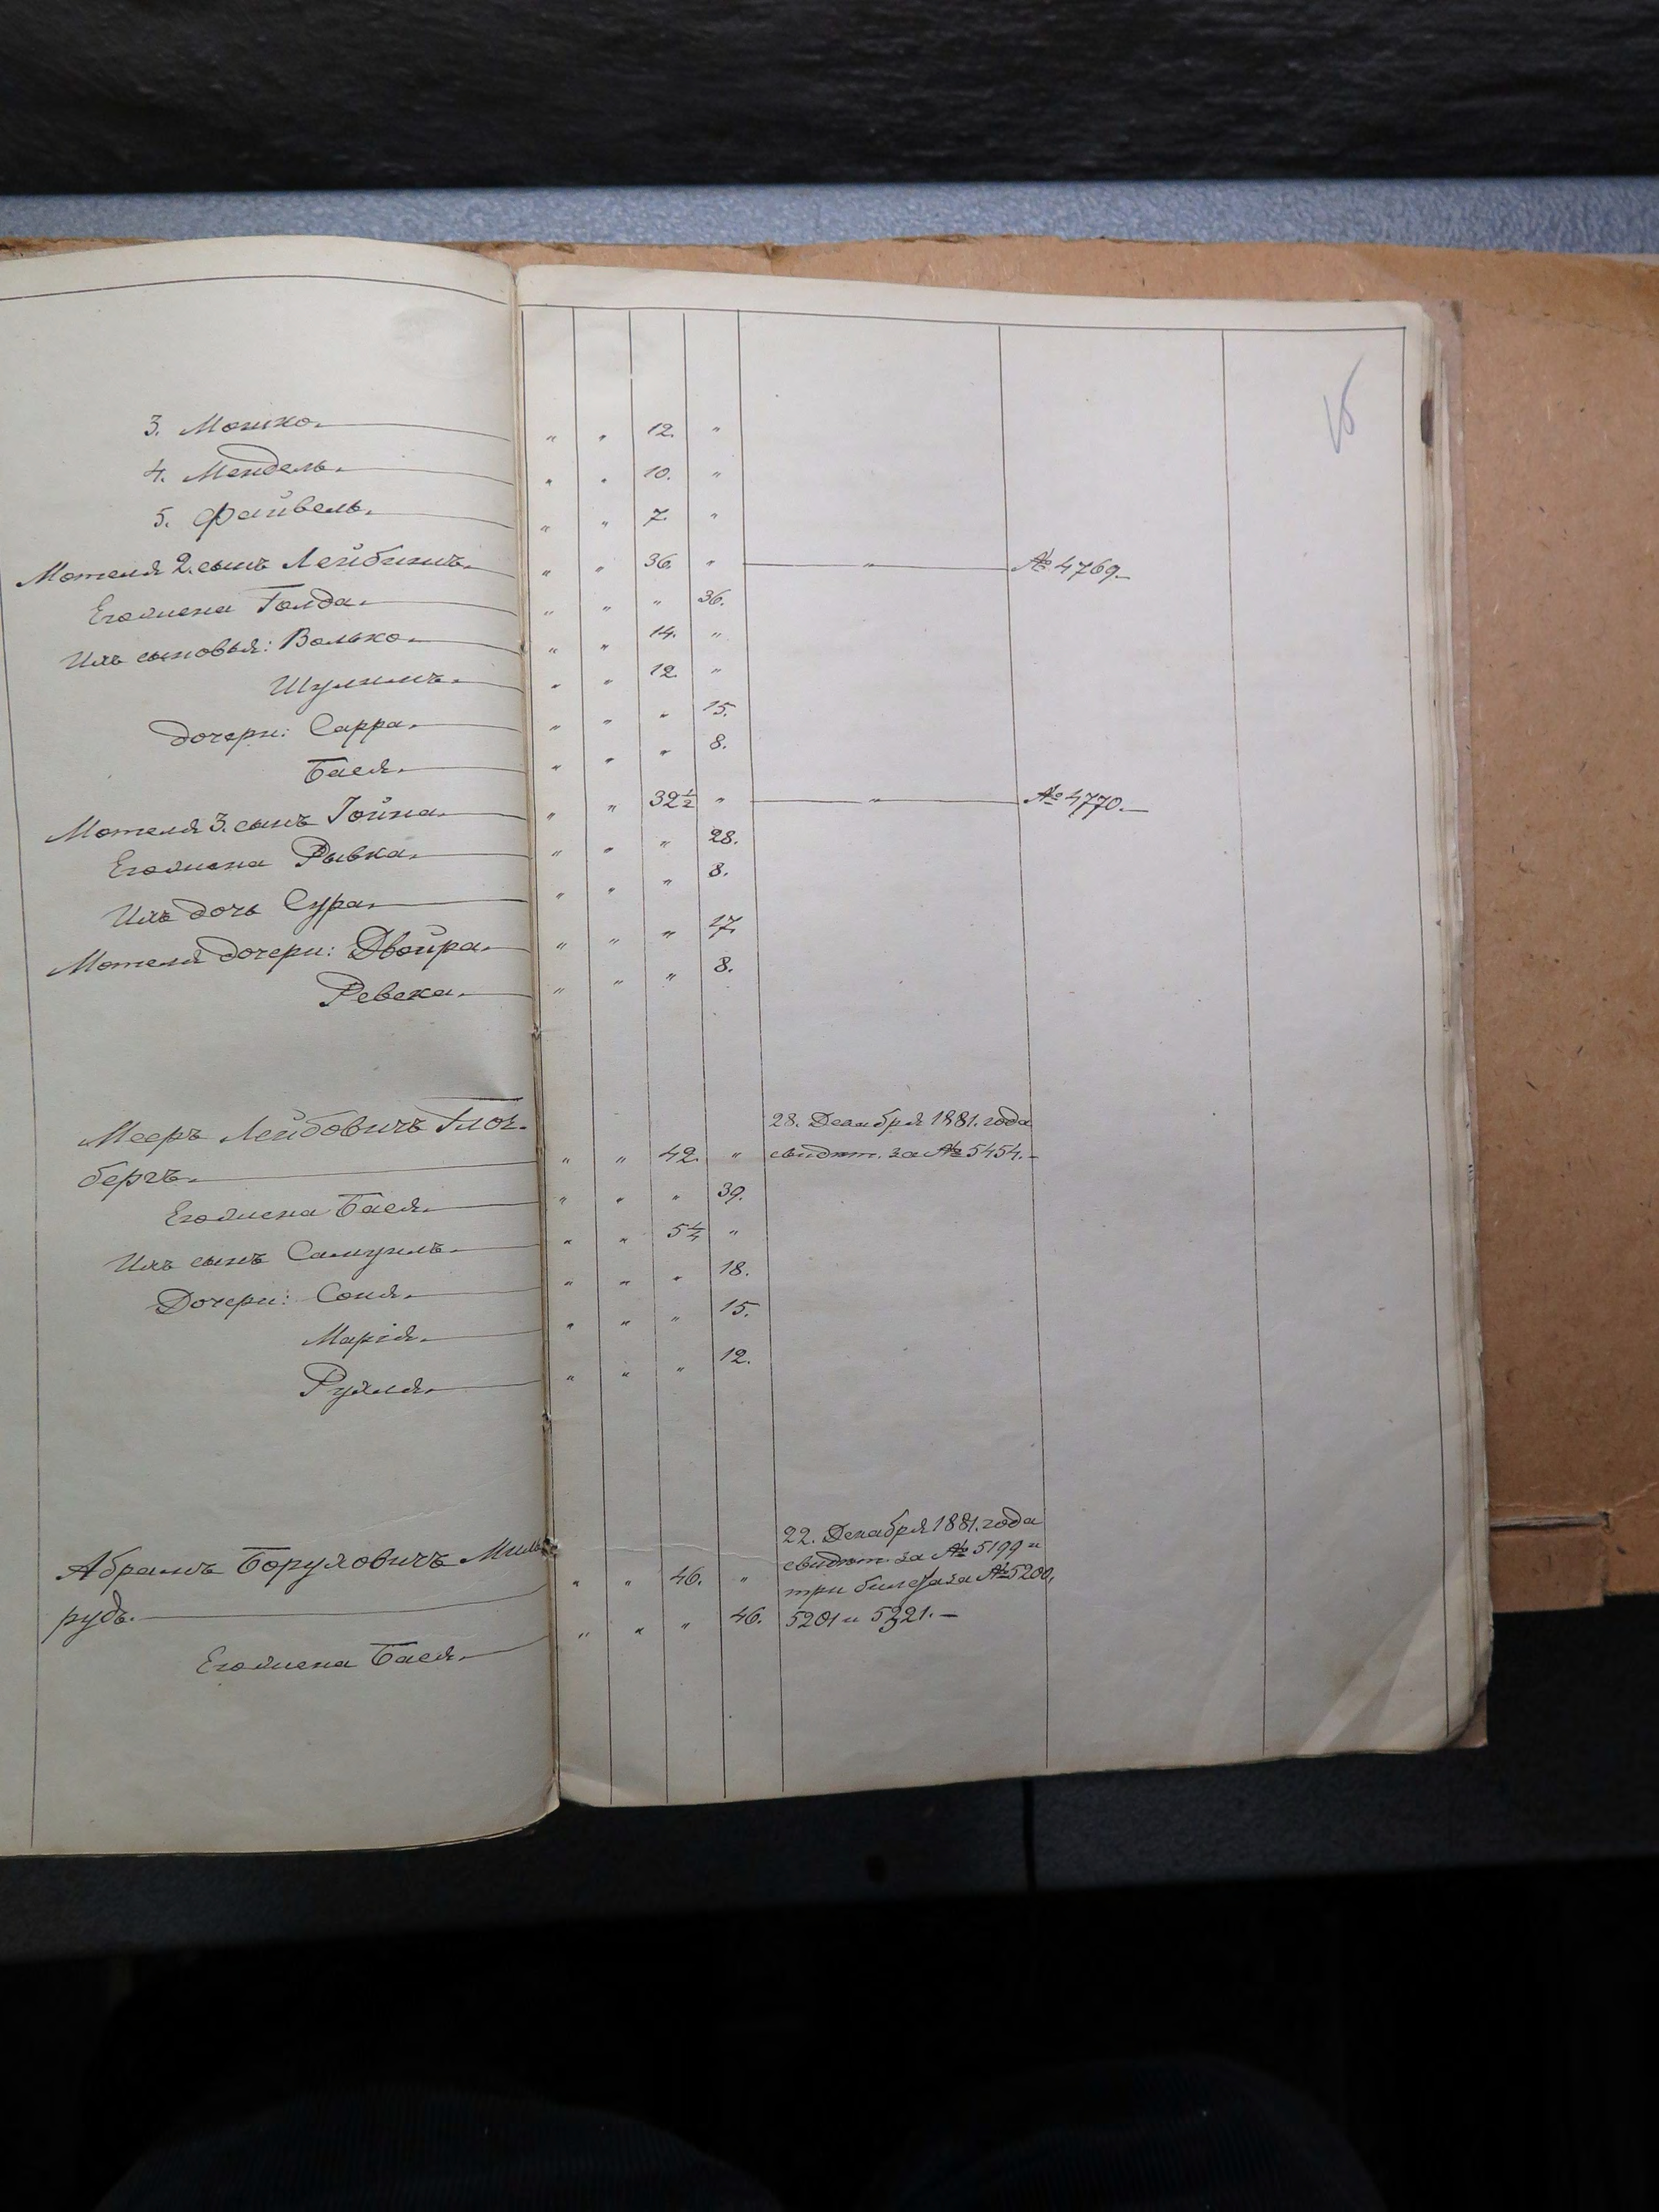 15
3. Мошко. " " 12. "
4. Мендель. " " 10. "
5. Файвель. " " 7. "
Мотеля 2. сынъ Лейбишъ. " " 36. " " № 4769.
Его жена Голда. " " " 36.
Ихъ сыновья: Волько. " " 14. "
Шулимъ. " " 12. "
дочери: Сарра. " " " 15.
Бася. " " " 8.
Мотеля 3. сынъ Іойна. " " 32½ " " № 4770.
Его жена Рывка. " " " 28.
Ихъ дочь Сура. " " " 8.
Мотеля дочери: Двойра. " " " 17.
Ревека. " " " 8.
28. Декабря 1881. года
Мееръ Лейбовичъ Глоз-
бергъ. " " 42. " свидѣт. за № 5454.
Его жена Бася. " " " 39.
Ихъ сынъ Самуилъ. " " "
Дочери: Соня. " " " 18.
Марія. " " " 15.
Рухля. " " " 12.
22. Декабря 1881. года
Абрамъ Боруховичъ Миль свидѣт. за № 5199 и
рудъ. " " 46. " три билета за № 5200,
Его жена Бася. " " " 46. 5201 и 5321.